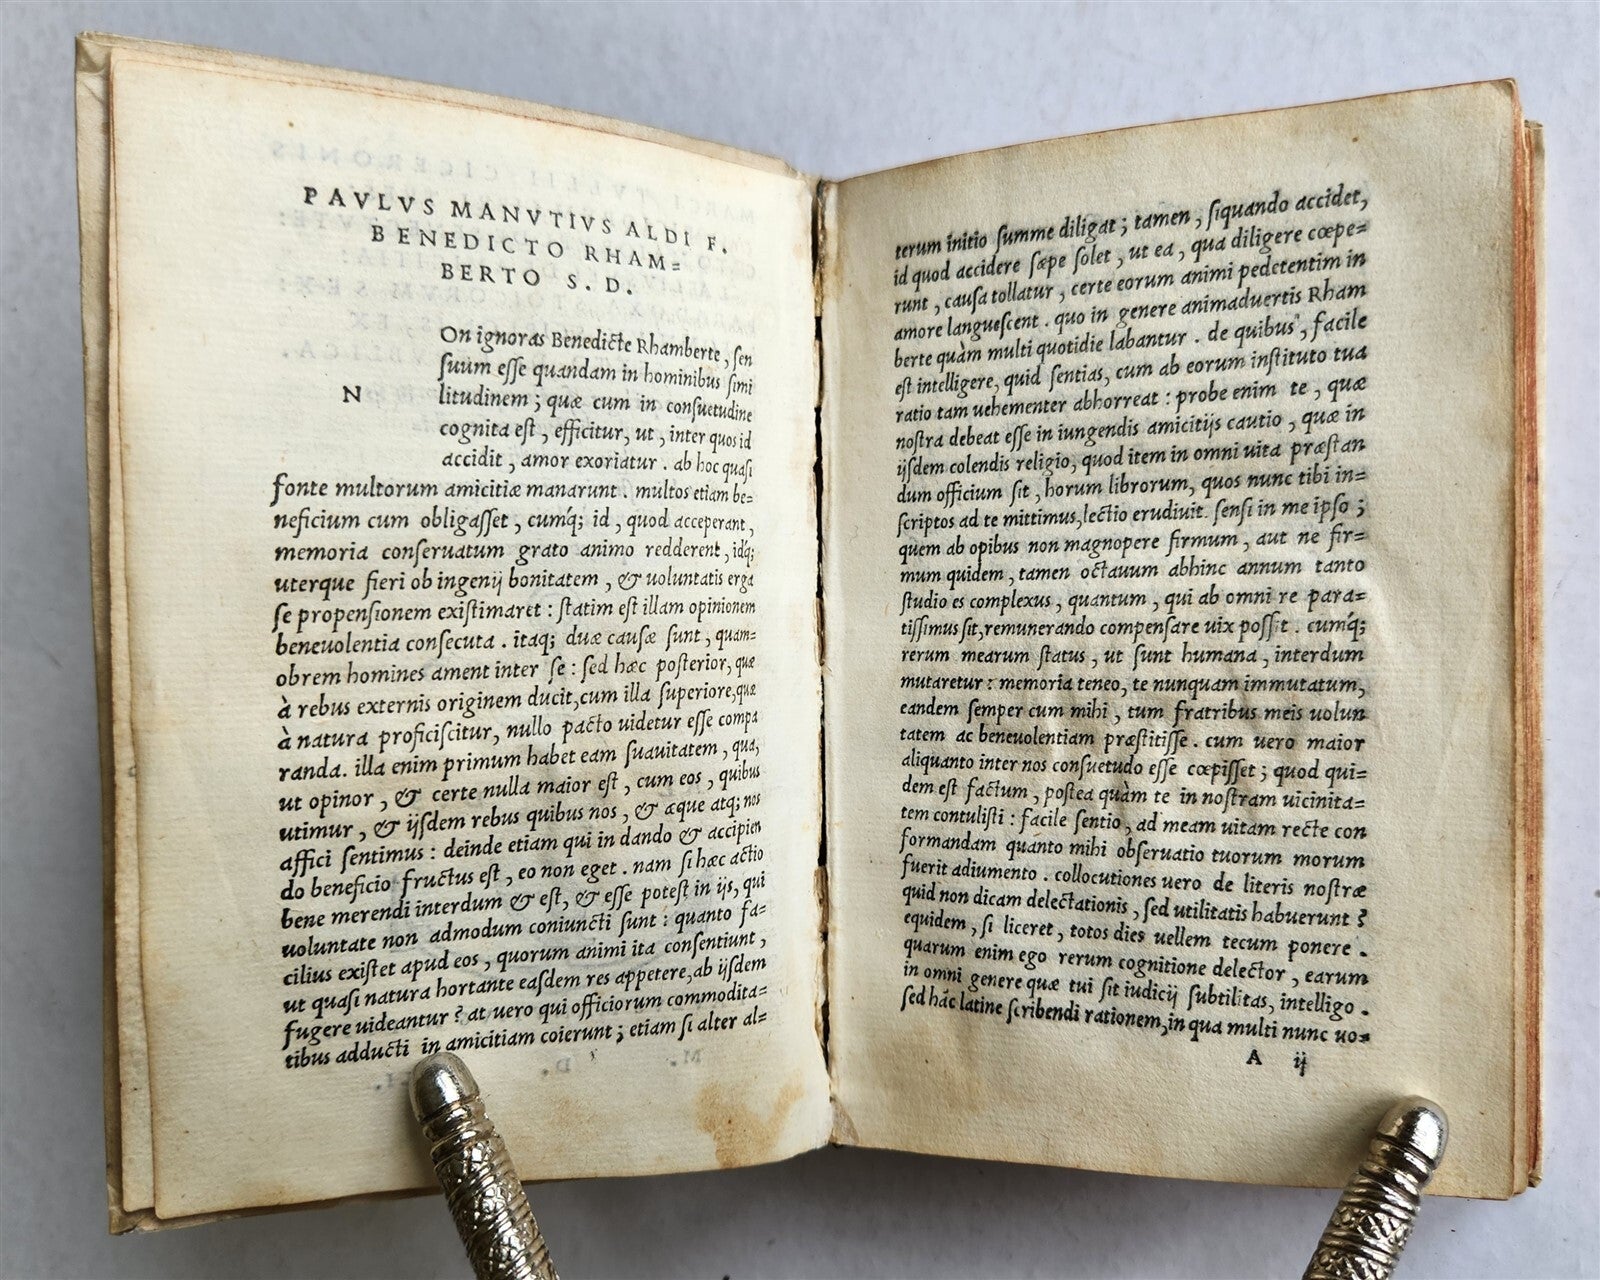 PAVLVS MANVTIVS ALDI F.
BENEDICTO RHAM=
BERTO S. D.
N
On ignoras Benedicte Rhamberte, sen
suum esse quandam in hominibus simi
litudinem; quæ cum in consuetudine
cognita est, efficitur, ut, inter quos id
accidit, amor exoriatur. ab hoc quasi
fonte multorum amicitiæ manarunt. multos etiam be=
neficium cum obligasset, cumq́; id, quod acceperant,
memoria conseruatum grato animo redderent, idq́;
uterque fieri ob ingenij bonitatem, & uoluntatis erga
se propensionem existimaret: statim est illam opinionem
beneuolentia consecuta. itaq; duæ causæ sunt, quam=
obrem homines ament inter se: sed hæc posterior, quæ
à rebus externis originem ducit, cum illa superiore, quæ
à natura proficiscitur, nullo pacto uidetur esse compa
randa. illa enim primum habet eam suauitatem, qua,
ut opinor, & certe nulla maior est, cum eos, quibus
utimur, & ijsdem rebus quibus nos, & æque atq; nos
affici sentimus: deinde etiam qui in dando & accipien
do beneficio fructus est, eo non eget. nam si hæc actio
bene merendi interdum & est, & esse potest in ijs, qui
uoluntate non admodum coniuncti sunt: quanto fa=
cilius existet apud eos, quorum animi ita consentiunt,
ut quasi natura hortante easdem res appetere, ab ijsdem
fugere uideantur? at uero qui officiorum commodita=
tibus adducti in amicitiam coierunt; etiam si alter al=
terum initio summe diligat; tamen, siquando accidet,
id quod accidere sæpe solet, ut ea, qua diligere cœpe=
runt, causa tollatur, certe eorum animi pedetentim in
amore languescent. quo in genere animaduertis Rham
berte quàm multi quotidie labantur. de quibus, facile
est intelligere, quid sentias, cum ab eorum instituto tua
ratio tam uehementer abhorreat: probe enim te, quæ
nostra debeat esse in iungendis amicitijs cautio, quæ in
ijsdem colendis religio, quod item in omni uita præstan
dum officium sit, horum librorum, quos nunc tibi in=
scriptos ad te mittimus, lectio erudiuit. sensi in me ipso;
quem ab opibus non magnopere firmum, aut ne fir=
mum quidem, tamen octauum abhinc annum tanto
studio es complexus, quantum, qui ab omni re para=
tissimus sit, remunerando compensare uix possit. cumq́;
rerum mearum status, ut sunt humana, interdum
mutaretur: memoria teneo, te nunquam immutatum,
eandem semper cum mihi, tum fratribus meis uolun
tatem ac beneuolentiam præstitisse. cum uero maior
aliquanto inter nos consuetudo esse cœpisset; quod qui=
dem est factum, postea quàm te in nostram uicinita=
tem contulisti: facile sentio, ad meam uitam recte con
formandam quanto mihi obseruatio tuorum morum
fuerit adiumento. collocutiones uero de literis nostræ
quid non dicam delectationis, sed utilitatis habuerunt?
equidem, si liceret, totos dies uellem tecum ponere.
quarum enim ego rerum cognitione delector, earum
in omni genere quæ tui sit iudicij subtilitas, intelligo.
sed hác latine scribendi rationem, in qua multi nunc uo=
A ij